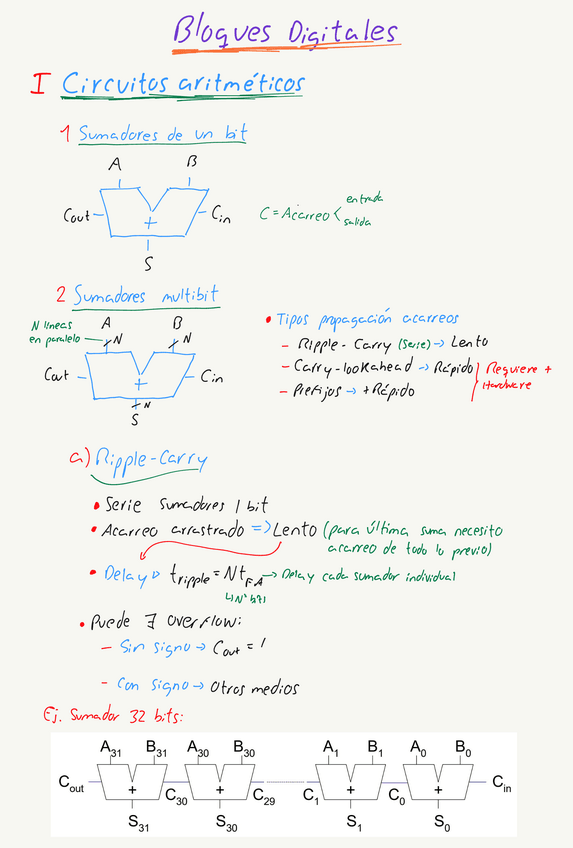 Bloques Digitales
I Circuitos aritméticos
1 Sumadores de un bit
A B
Cout Cin
+
S
C = Acarreo < entrada
salida
2 Sumadores multibit
N líneas
en paralelo
A B
N N
Cout Cin
+
N
S
• Tipos propagación acarreos
- Ripple-Carry (Serie) → Lento
- Carry-lookahead → Rápido
- Prefijos → +Rápido
Requiere +
Hardware
a) Ripple-Carry
• Serie sumadores 1 bit
• Acarreo arrastrado => Lento (para última suma necesito
acarreo de todo lo previo)
• Delay t_ripple = N t_FA → Delay cada sumador individual
↳ Nº bits
• Puede ∃ overflow:
- Sin signo → Cout = 1
- Con signo → otros medios
Ej. Sumador 32 bits:
A31 B31 A30 B30 A1 B1 A0 B0
Cout + C30 + C29 C1 + C0 + Cin
S31 S30 S1 S0